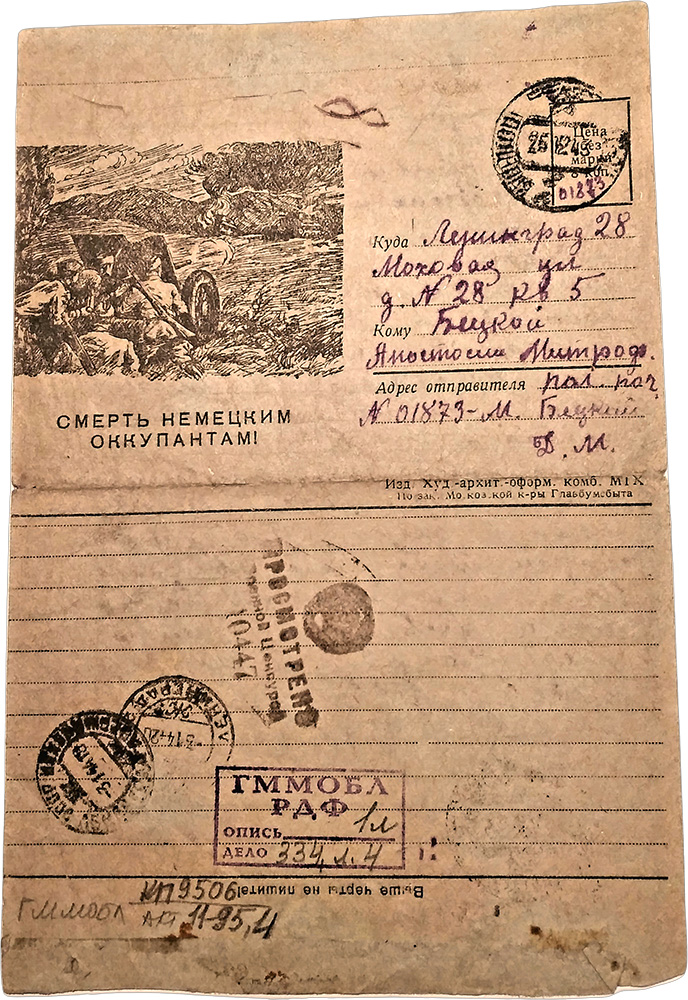 8
25 12 43
Цена
без
марки
коп.
01873
Куда Ленинград 28
Моховая ул
д. N 28 кв 5
Кому Бецкой
Анастасии Митроф.
Адрес отправителя пол. поч
N 01873-М. Бецкий
Д. М.
СМЕРТЬ НЕМЕЦКИМ
ОККУПАНТАМ!
Изд. Худ.-архит.-оформ. комб. МТХ
По зак. Московской к-ры Главбумсбыта
ПРОСМОТРЕНО
Военной Цензурой
10447
ЛЕНИНГРАД
ГММОБЛ
РДФ
ОПИСЬ 1л
ДЕЛО 334 л. 4
Выше черты не пишите!
ГММОБЛ КП9506
АФ 11-95,4